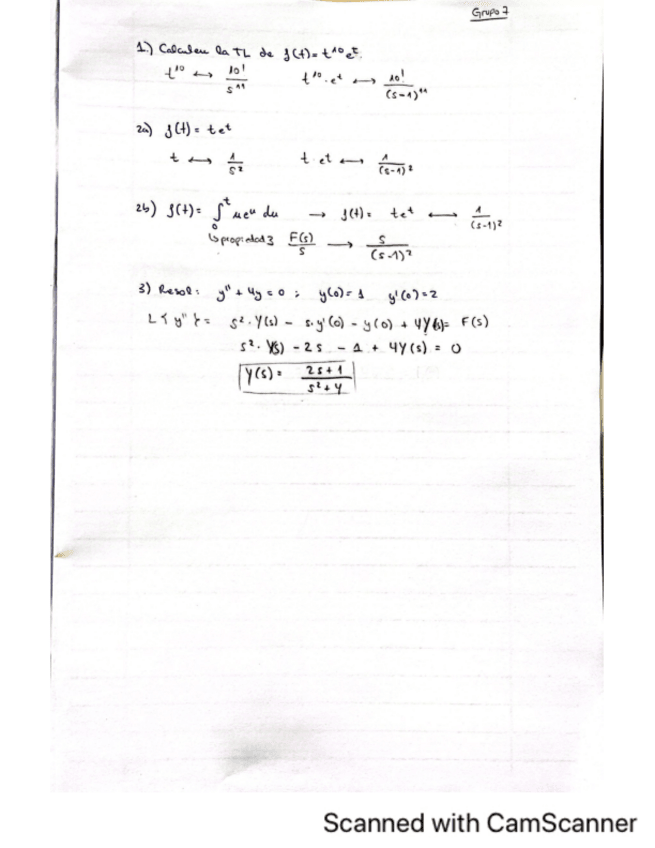 Grupo 7
1.) Calculeu la TL de f(t) = t¹⁰eᵗ.
t¹⁰ ↔ 10!/s¹¹     t¹⁰·eᵗ ↔ 10!/(s-1)¹¹
2a) f(t) = teᵗ
t ↔ 1/s²     t·eᵗ ↔ 1/(s-1)²
2b) f(t) = ∫₀ᵗ ueᵘ du → f(t) = teᵗ ↔ 1/(s-1)²
↳ propiedad 3 F(s)/s → s/(s-1)²
3) Resol: y'' + 4y = 0 ; y(0) = 1 y'(0) = 2
L{y''} = s²·Y(s) - s·y'(0) - y(0) + 4Y(s) = F(s)
s²·Y(s) - 2s - 1 + 4Y(s) = 0
Y(s) = 2s+1/s²+4
Scanned with CamScanner